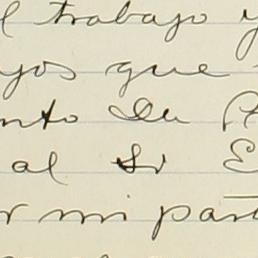 l trabajo y
yos que
nto Du
al Sr E
r mi part